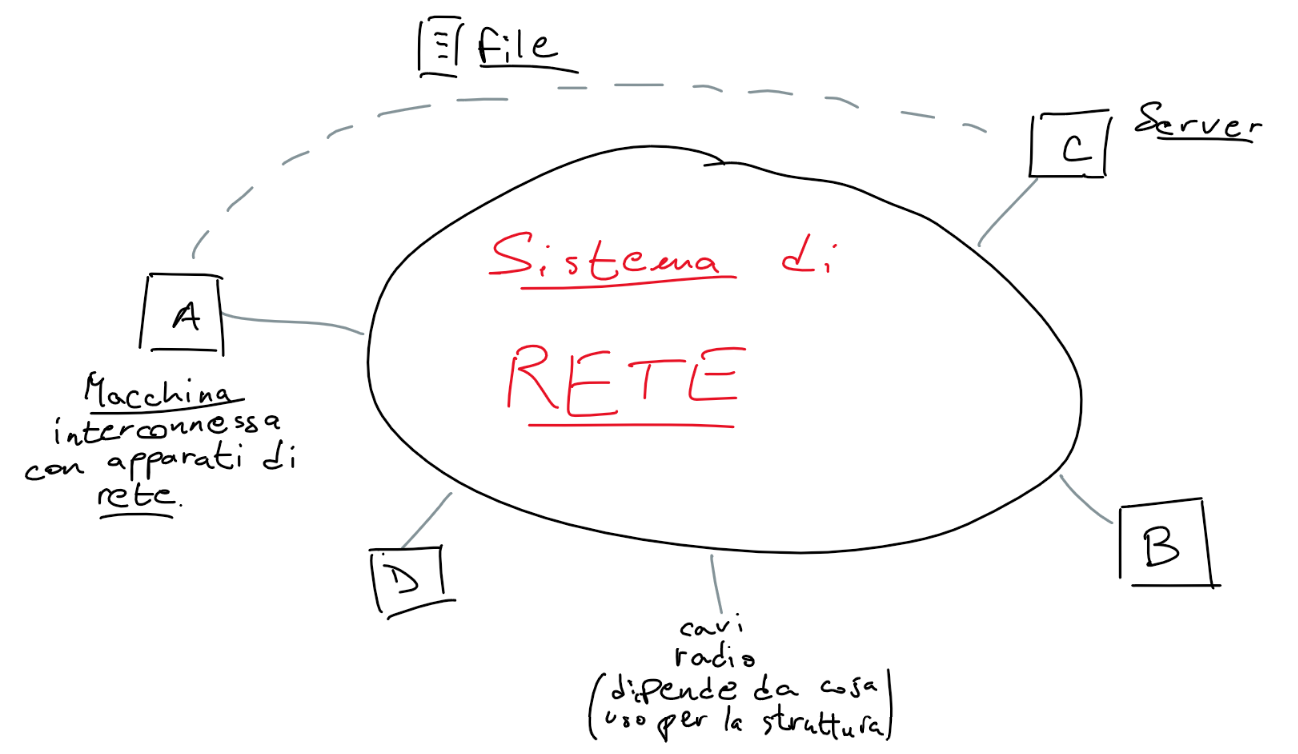 File
Server
C
Sistema di
RETE
A
Macchina
interconnessa
con apparati di
rete.
B
D
cavi
radio
(dipende da cosa
uso per la struttura)